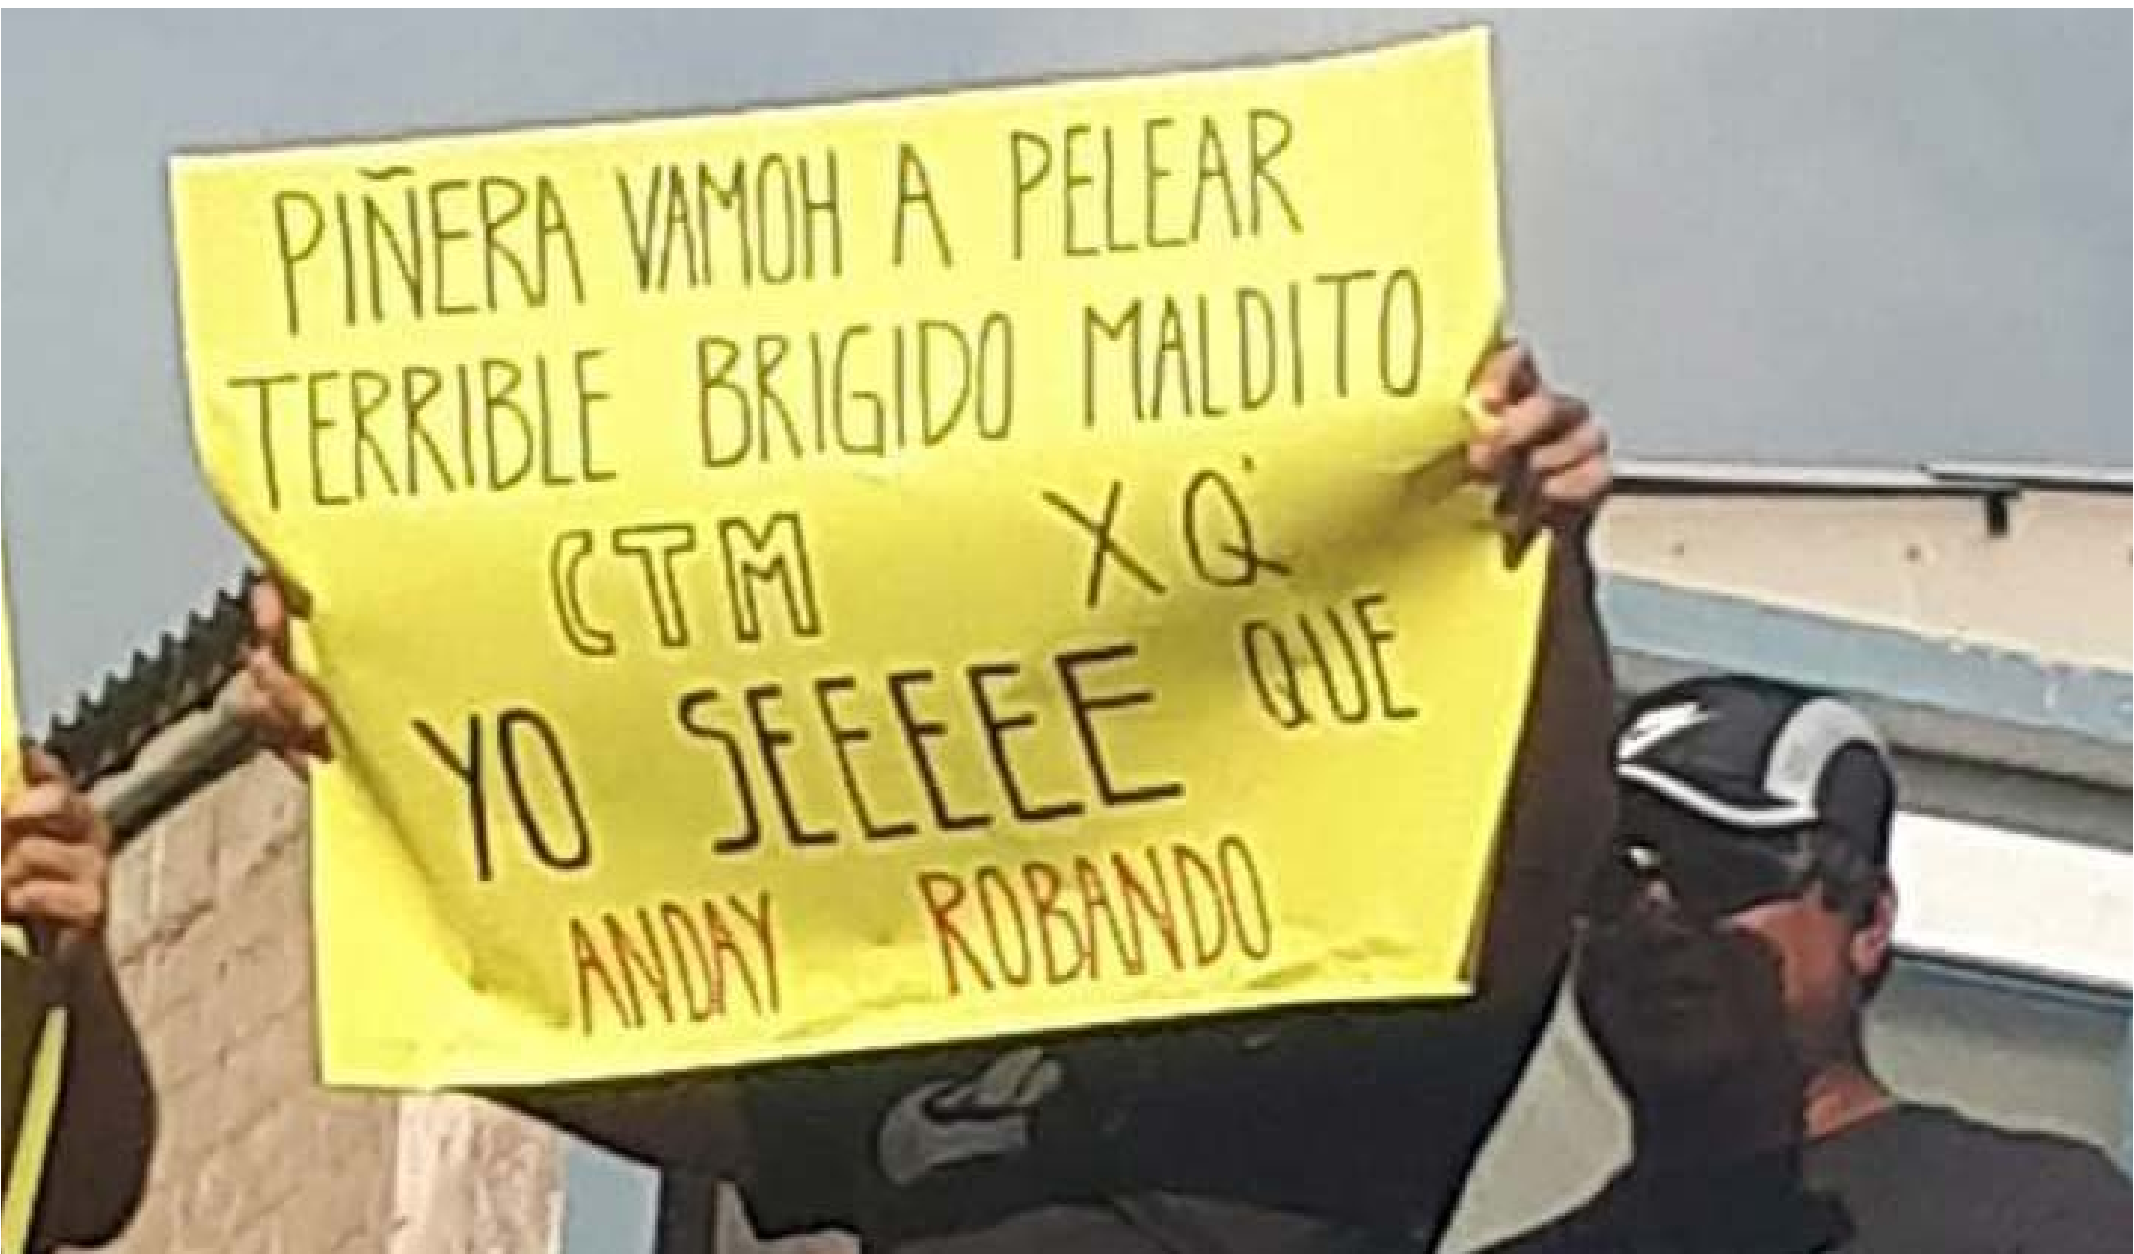 PIÑERA VAMOH A PELEAR
TERRIBLE BRIGIDO MALDITO
CTM XQ'
YO SEEEEE QUE
ANDAY ROBANDO